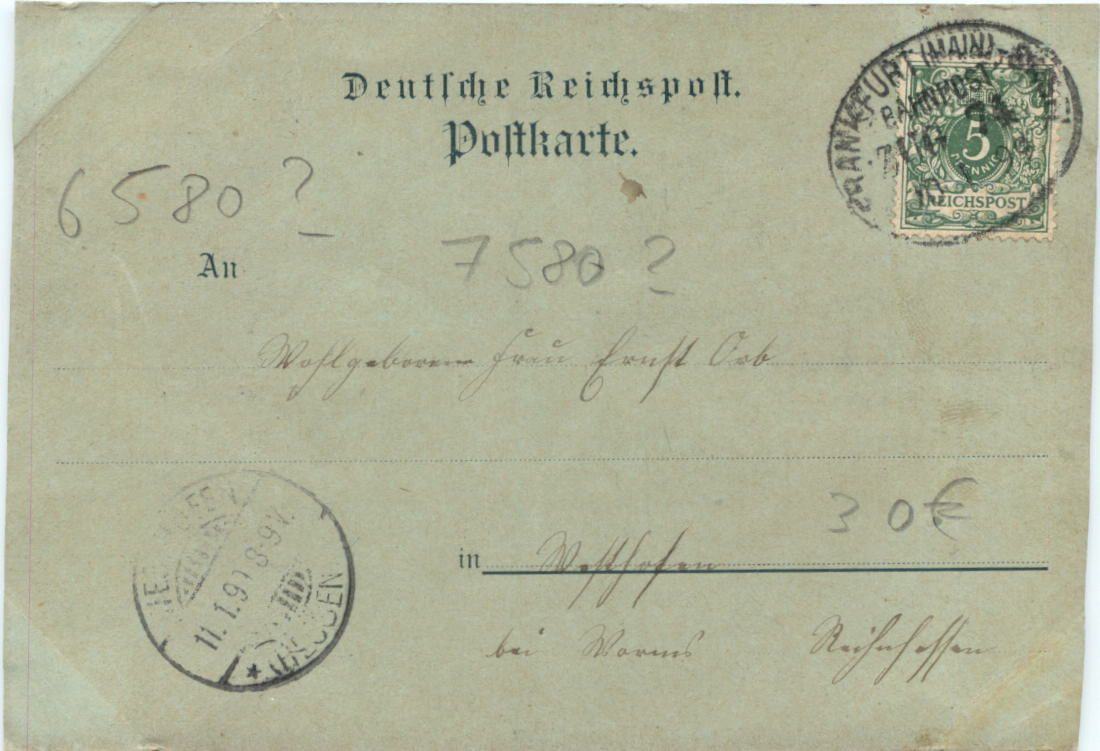 Deutsche Reichspost.
Postkarte.
FRANKFURT (MAIN)-
BAHNPOST
5
PFENNIG
REICHSPOST
6580 ?
An
7580 ?
Wohlgeboren Frau Ernst Orb
30€
in Westhofen
bei Worms Reinhessen
11.1.9 8-9V.
(HESSEN)